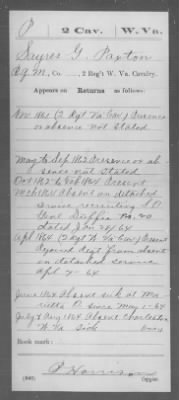 P | 2 Cav. | W. Va.
Sayres G. Paxton
A.Q.M., Co. , 2 Reg't W. Va. Cavalry.
Appears on Returns as follows:
Nov 1861 (2 Regt Va Cav) Presence
or absence not stated
May to Sep 1862 Presence or ab
sence not stated
Oct 1862 to Feb 1864 Present
Mch 1864 Absent on detached
service recruiting S.O
Genl Duffie No. 20
dated Jan 28/64
Apl 1864 (2 Regt W Va Cav) Present
Gained dept from absent
on detached service
Apl 7-64
June 1864 Absent sick at Ma
rietta O since May 1-64
July & Aug 1864 Absent Charleston
W Va Sick
Book mark:
P Harrison
Copyist.